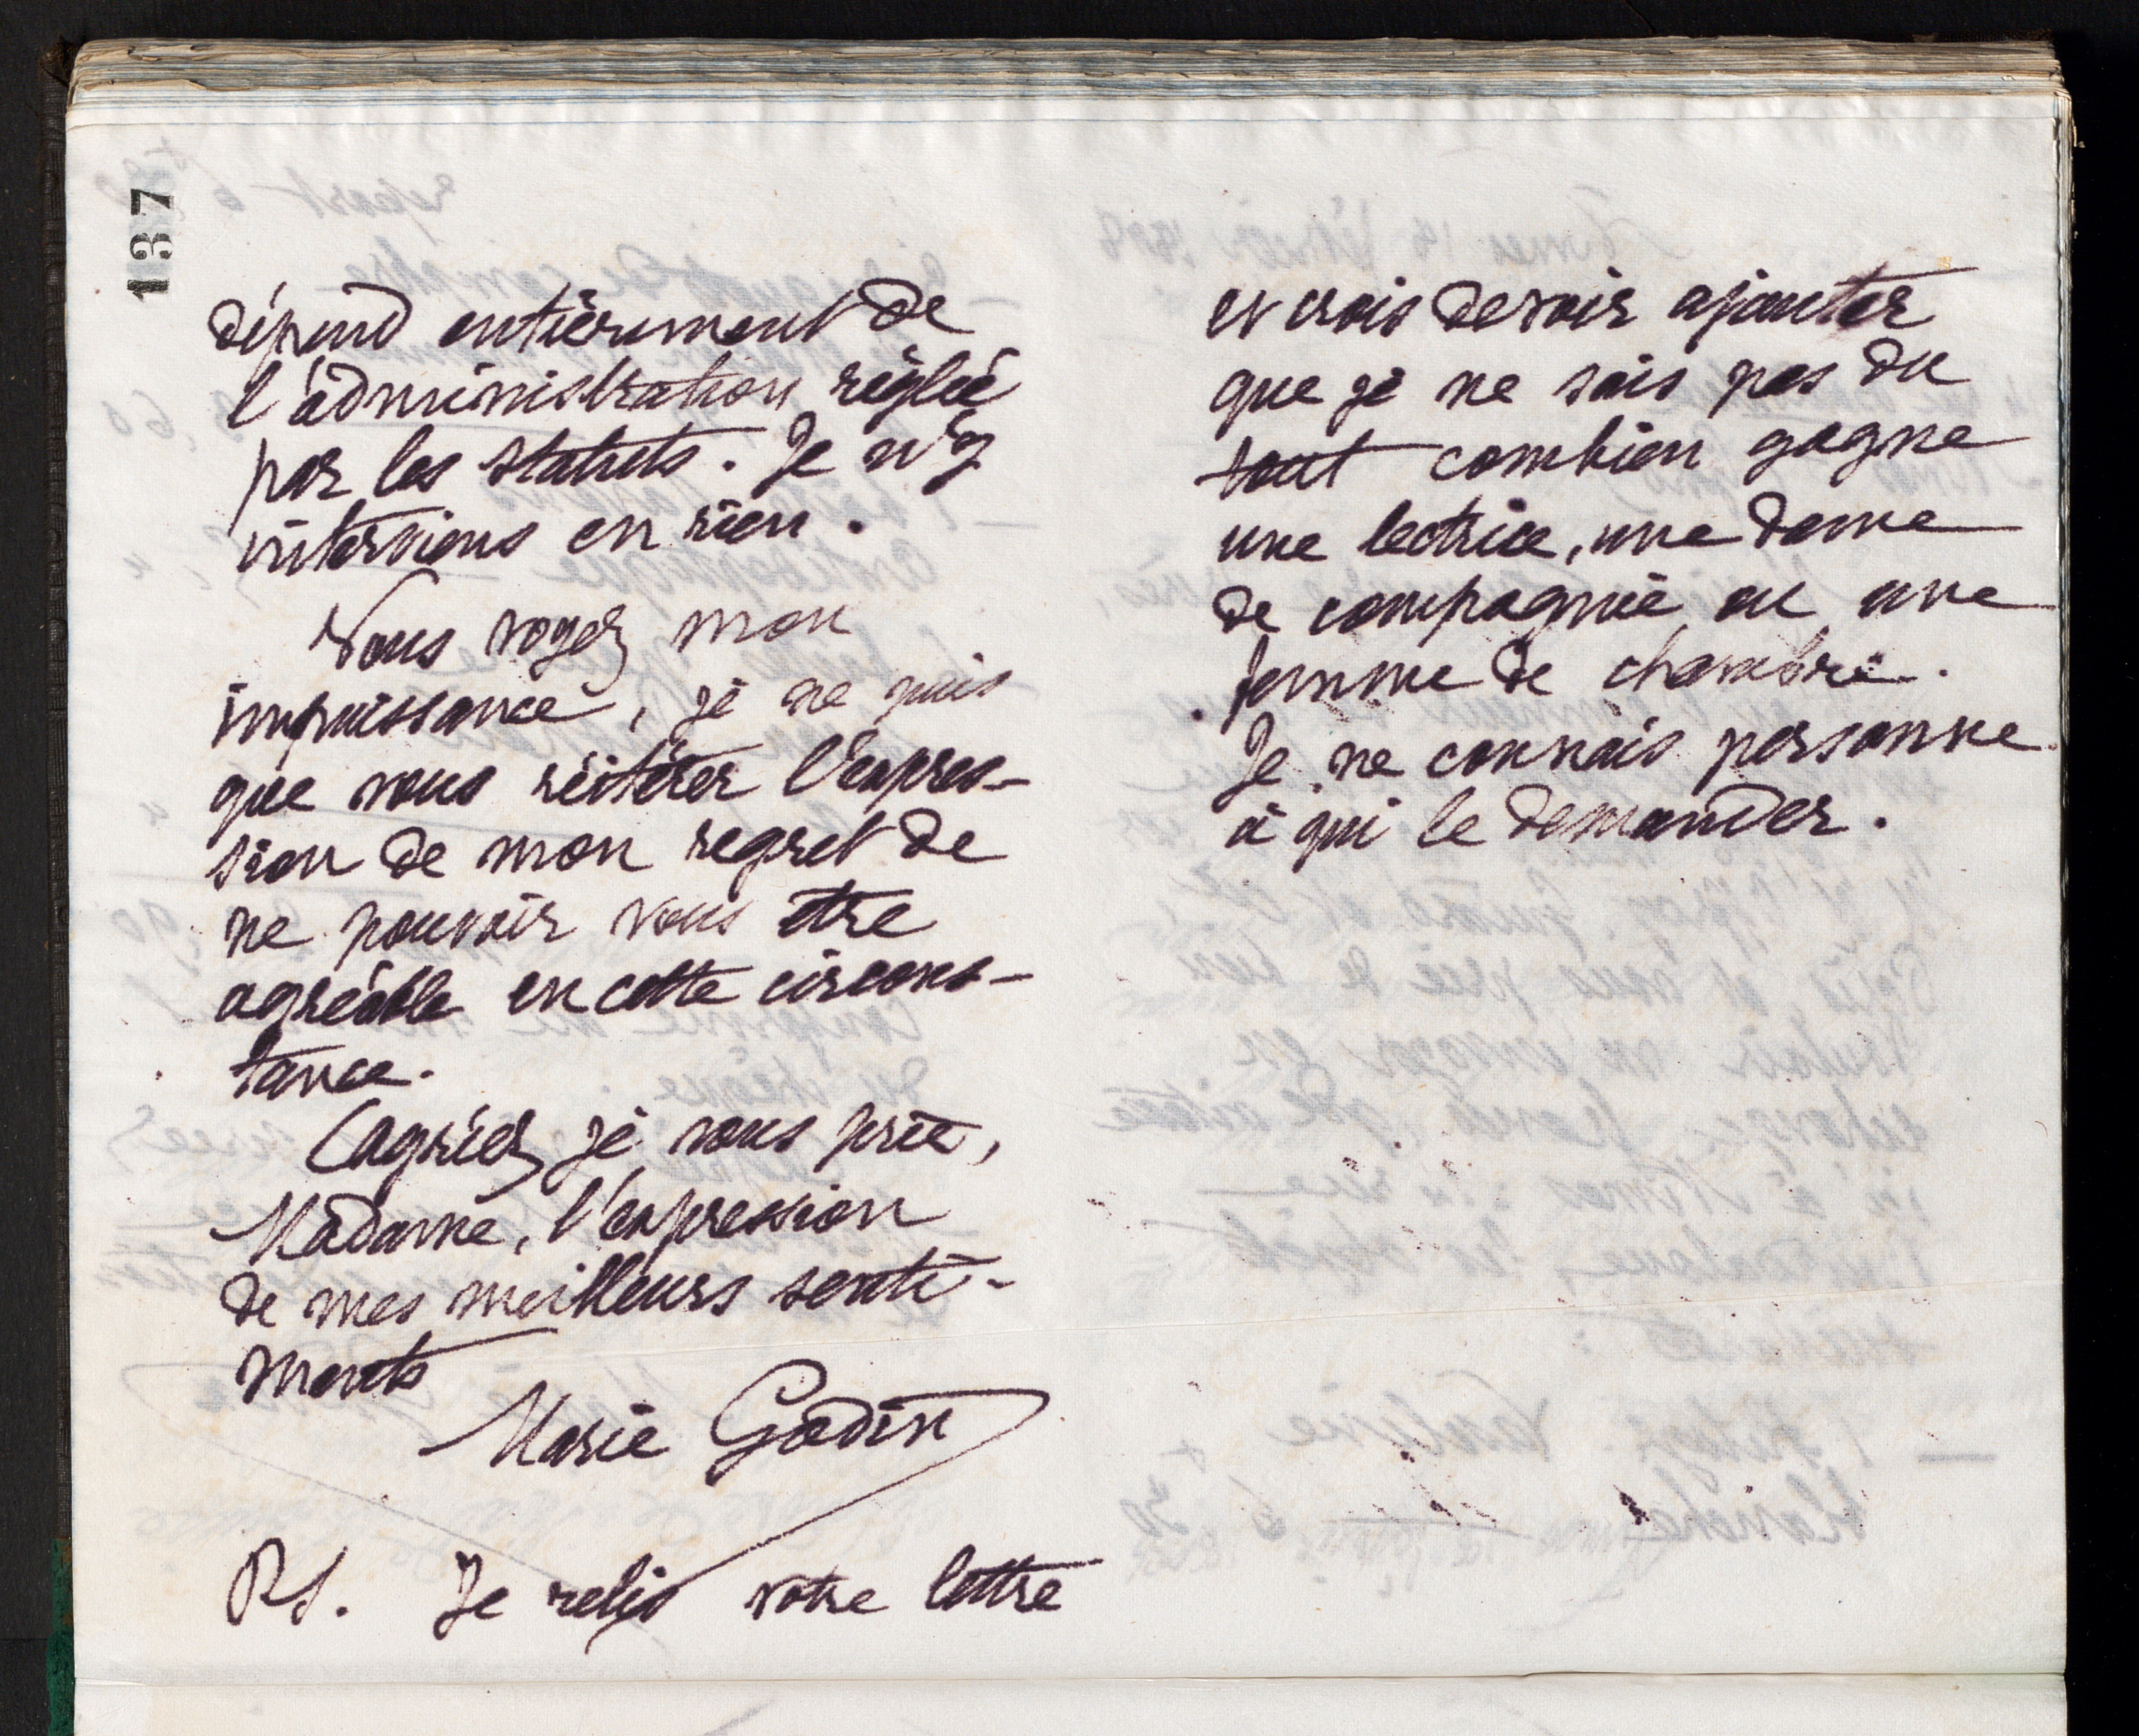 137
dépend entièrement de
l'administration réglée
par les statuts. Je n'y
interviens en rien.
Vous voyez mon
impuissance, je ne puis
que vous réitérer l'expres-
sion de mon regret de
ne pouvoir vous être
agréable en cette circons-
tance.
Agréez je vous prie,
Madame, l'expression
de mes meilleurs senti-
ments
Marie Godin
P.S. Je relis votre lettre
et crois devoir ajouter
que je ne sais pas du
tout combien gagne
une lectrice, une dame
de compagnie ou une
femme de chambre.
Je ne connais personne
à qui le demander.